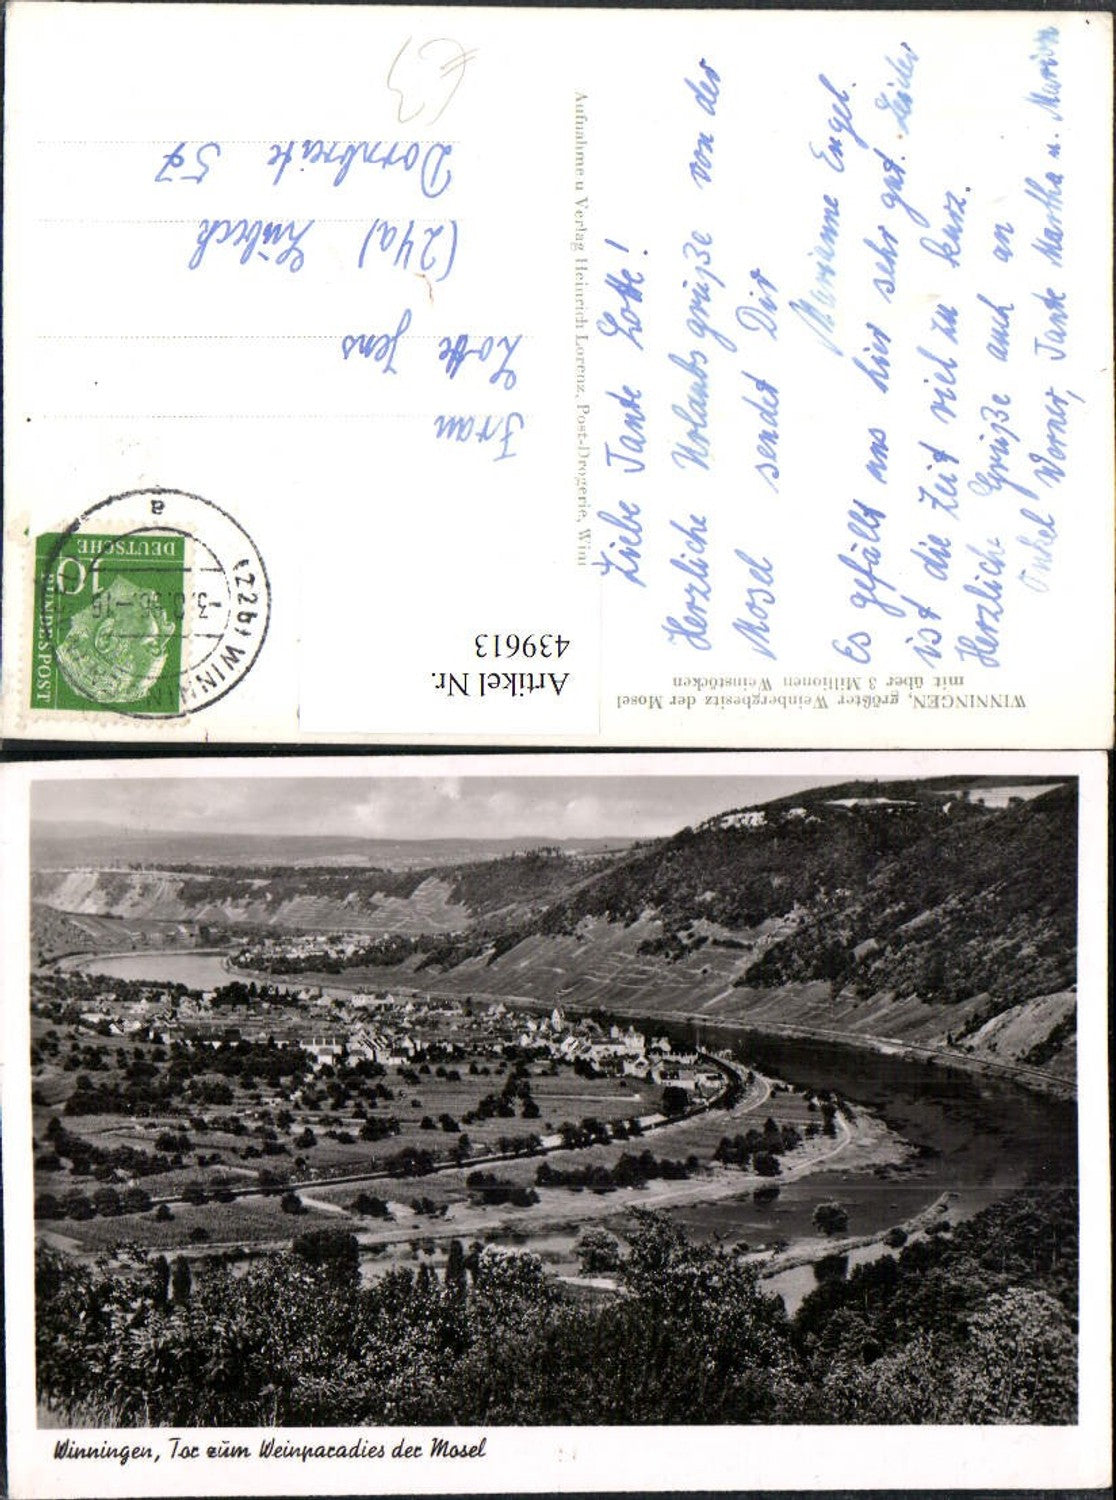 Liebe Tante Lotte!
Herzliche Urlaubsgrüße von der
Mosel sendet Dir
Marianne Engel.
Es gefällt uns hier sehr gut. Leider
ist die Zeit viel zu kurz.
Herzliche Grüße auch an
Onkel Werner, Tante Martha u. Marion
Aufnahme u Verlag Heinrich Lorenz, Post-Drogerie, Winn
Frau
Lotte Jens
(24a) Lübeck
Dornbreite 57
€3
DEUTSCHE
BUNDESPOST
10
(22b) WINNIN
a
Artikel Nr.
439613
WINNINGEN, größter Weinbergbesitz der Mosel
mit über 3 Millionen Weinstöcken
Winningen, Tor zum Weinparadies der Mosel